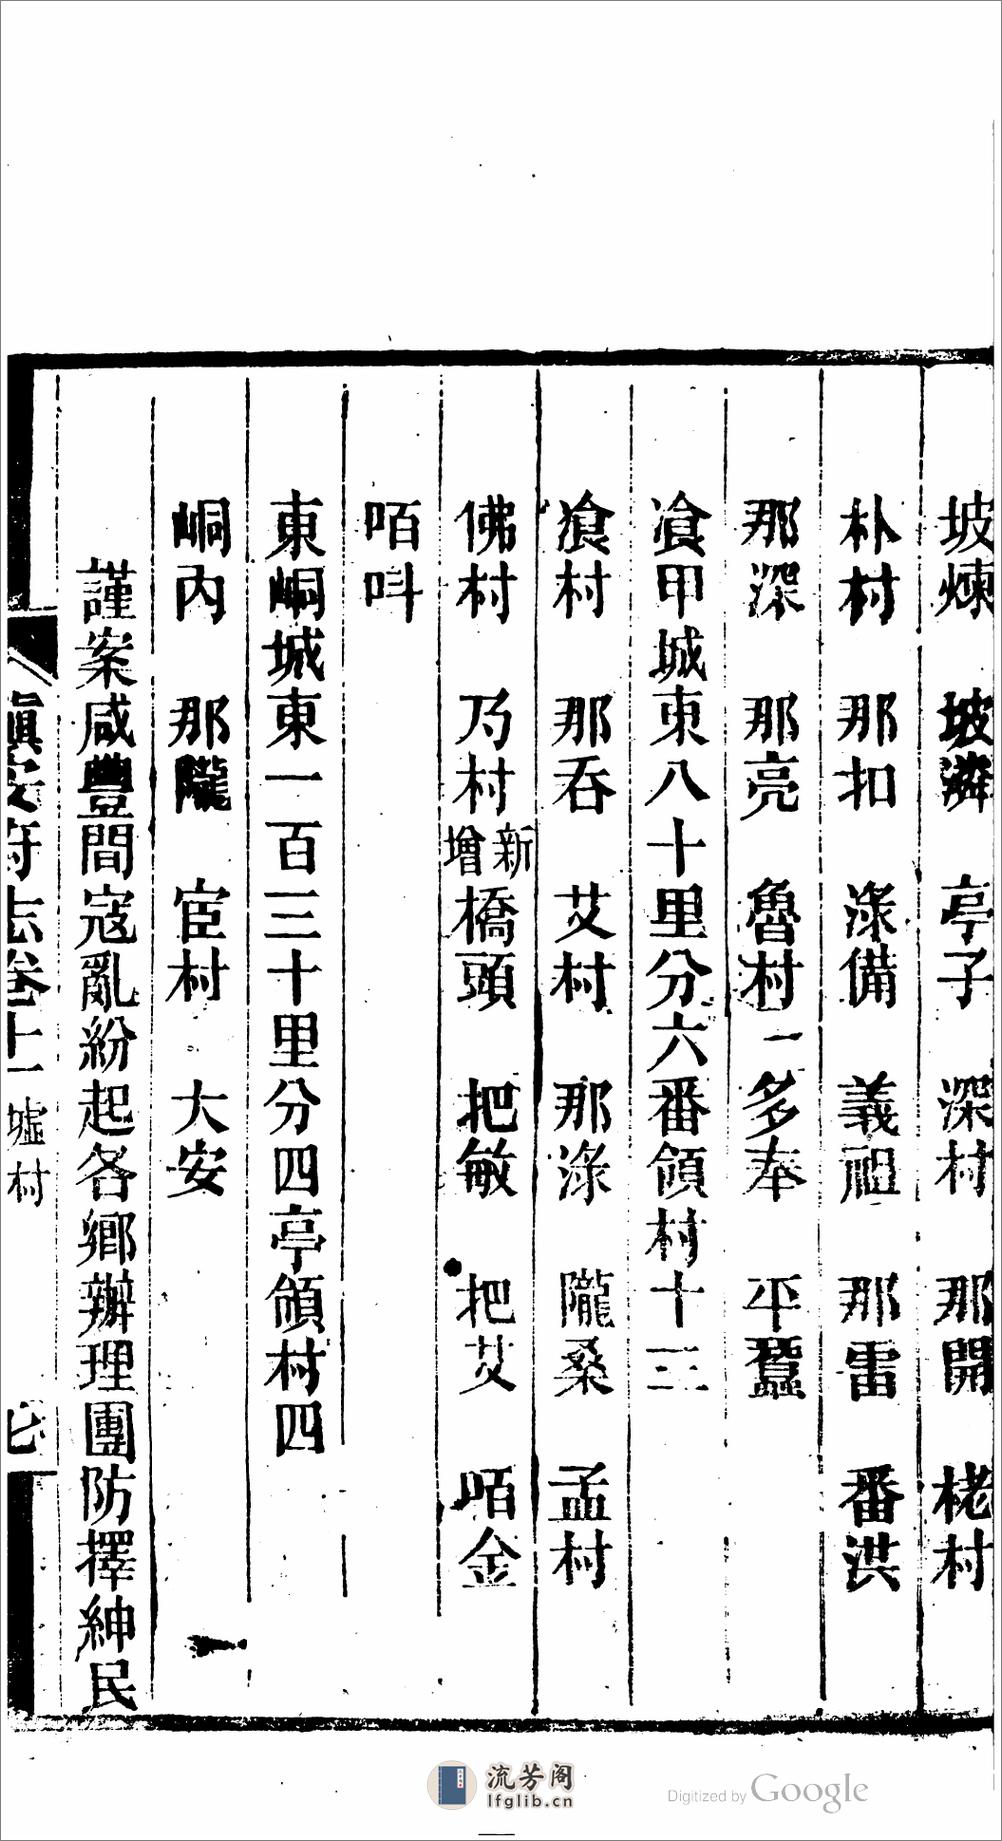 坡煉　坡潾　亭子　深村　那開　栳村
朴村　那扣　渌備　義祖　那雷　番洪
那深　那亮　魯村　多奉　平蠶
飡甲城東八十里分六番領村十三
飡村　那吞　艾村　那渌　隴桑　孟村
佛村　乃村新增橋頭　把敏　把艾　咟金
咟呌
東峒城東一百三十里分四亭領村四
峒內　那隴　宦村　大安
謹案咸豐間寇亂紛起各鄉辦理團防擇紳民
鎭安府志卷十一　墟村　七
流芳阁
lfglib.cn
Digitized by Google